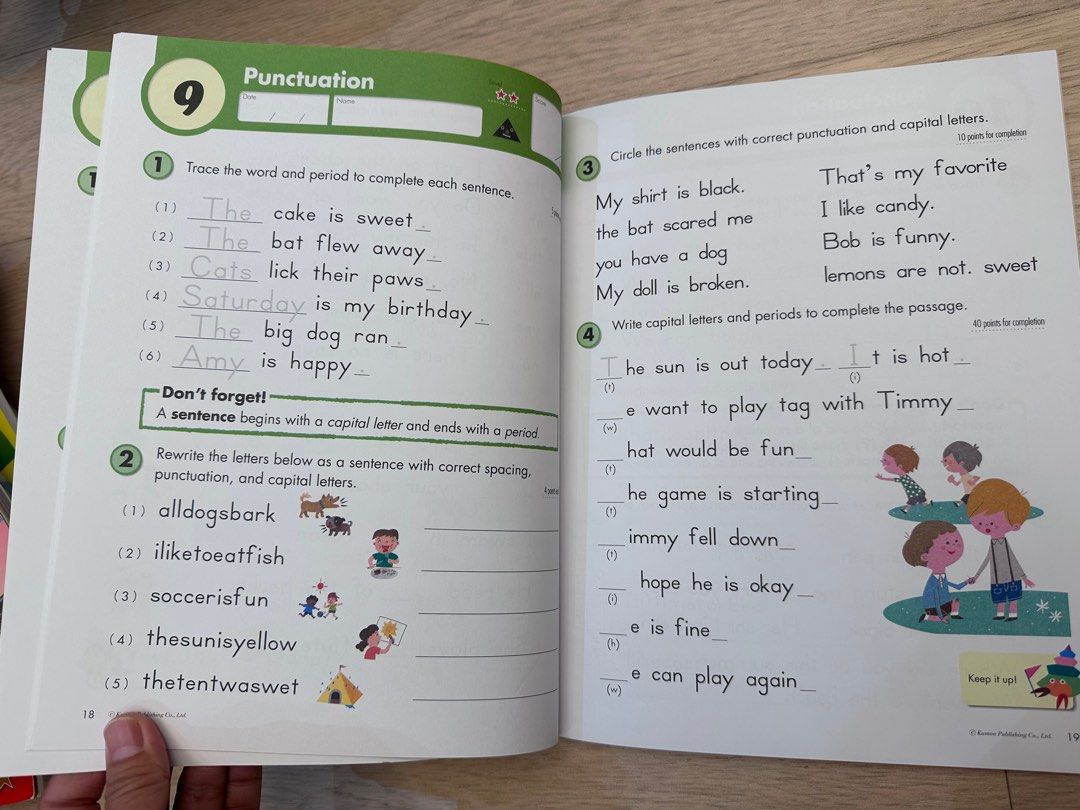 9
Punctuation
Date / /
Name
Level
Score
1 Trace the word and period to complete each sentence.
(1) The cake is sweet.
(2) The bat flew away.
(3) Cats lick their paws.
(4) Saturday is my birthday.
(5) The big dog ran.
(6) Amy is happy.
Don't forget!
A sentence begins with a capital letter and ends with a period.
2 Rewrite the letters below as a sentence with correct spacing,
punctuation, and capital letters.
(1) alldogsbark
(2) iliketoeatfish
(3) soccerisfun
(4) thesunisyellow
(5) thetentwaswet
18
© Kumon Publishing Co., Ltd.
3 Circle the sentences with correct punctuation and capital letters.
10 points for completion
My shirt is black.
the bat scared me
you have a dog
My doll is broken.
That's my favorite
I like candy.
Bob is funny.
lemons are not. sweet
4 Write capital letters and periods to complete the passage.
40 points for completion
T he sun is out today. I t is hot.
(t) (i)
__e want to play tag with Timmy__
(w)
__hat would be fun__
(t)
__he game is starting__
(t)
__immy fell down__
(t)
__ hope he is okay__
(i)
__e is fine__
(h)
__e can play again__
(w)
Keep it up!
© Kumon Publishing Co., Ltd.
19